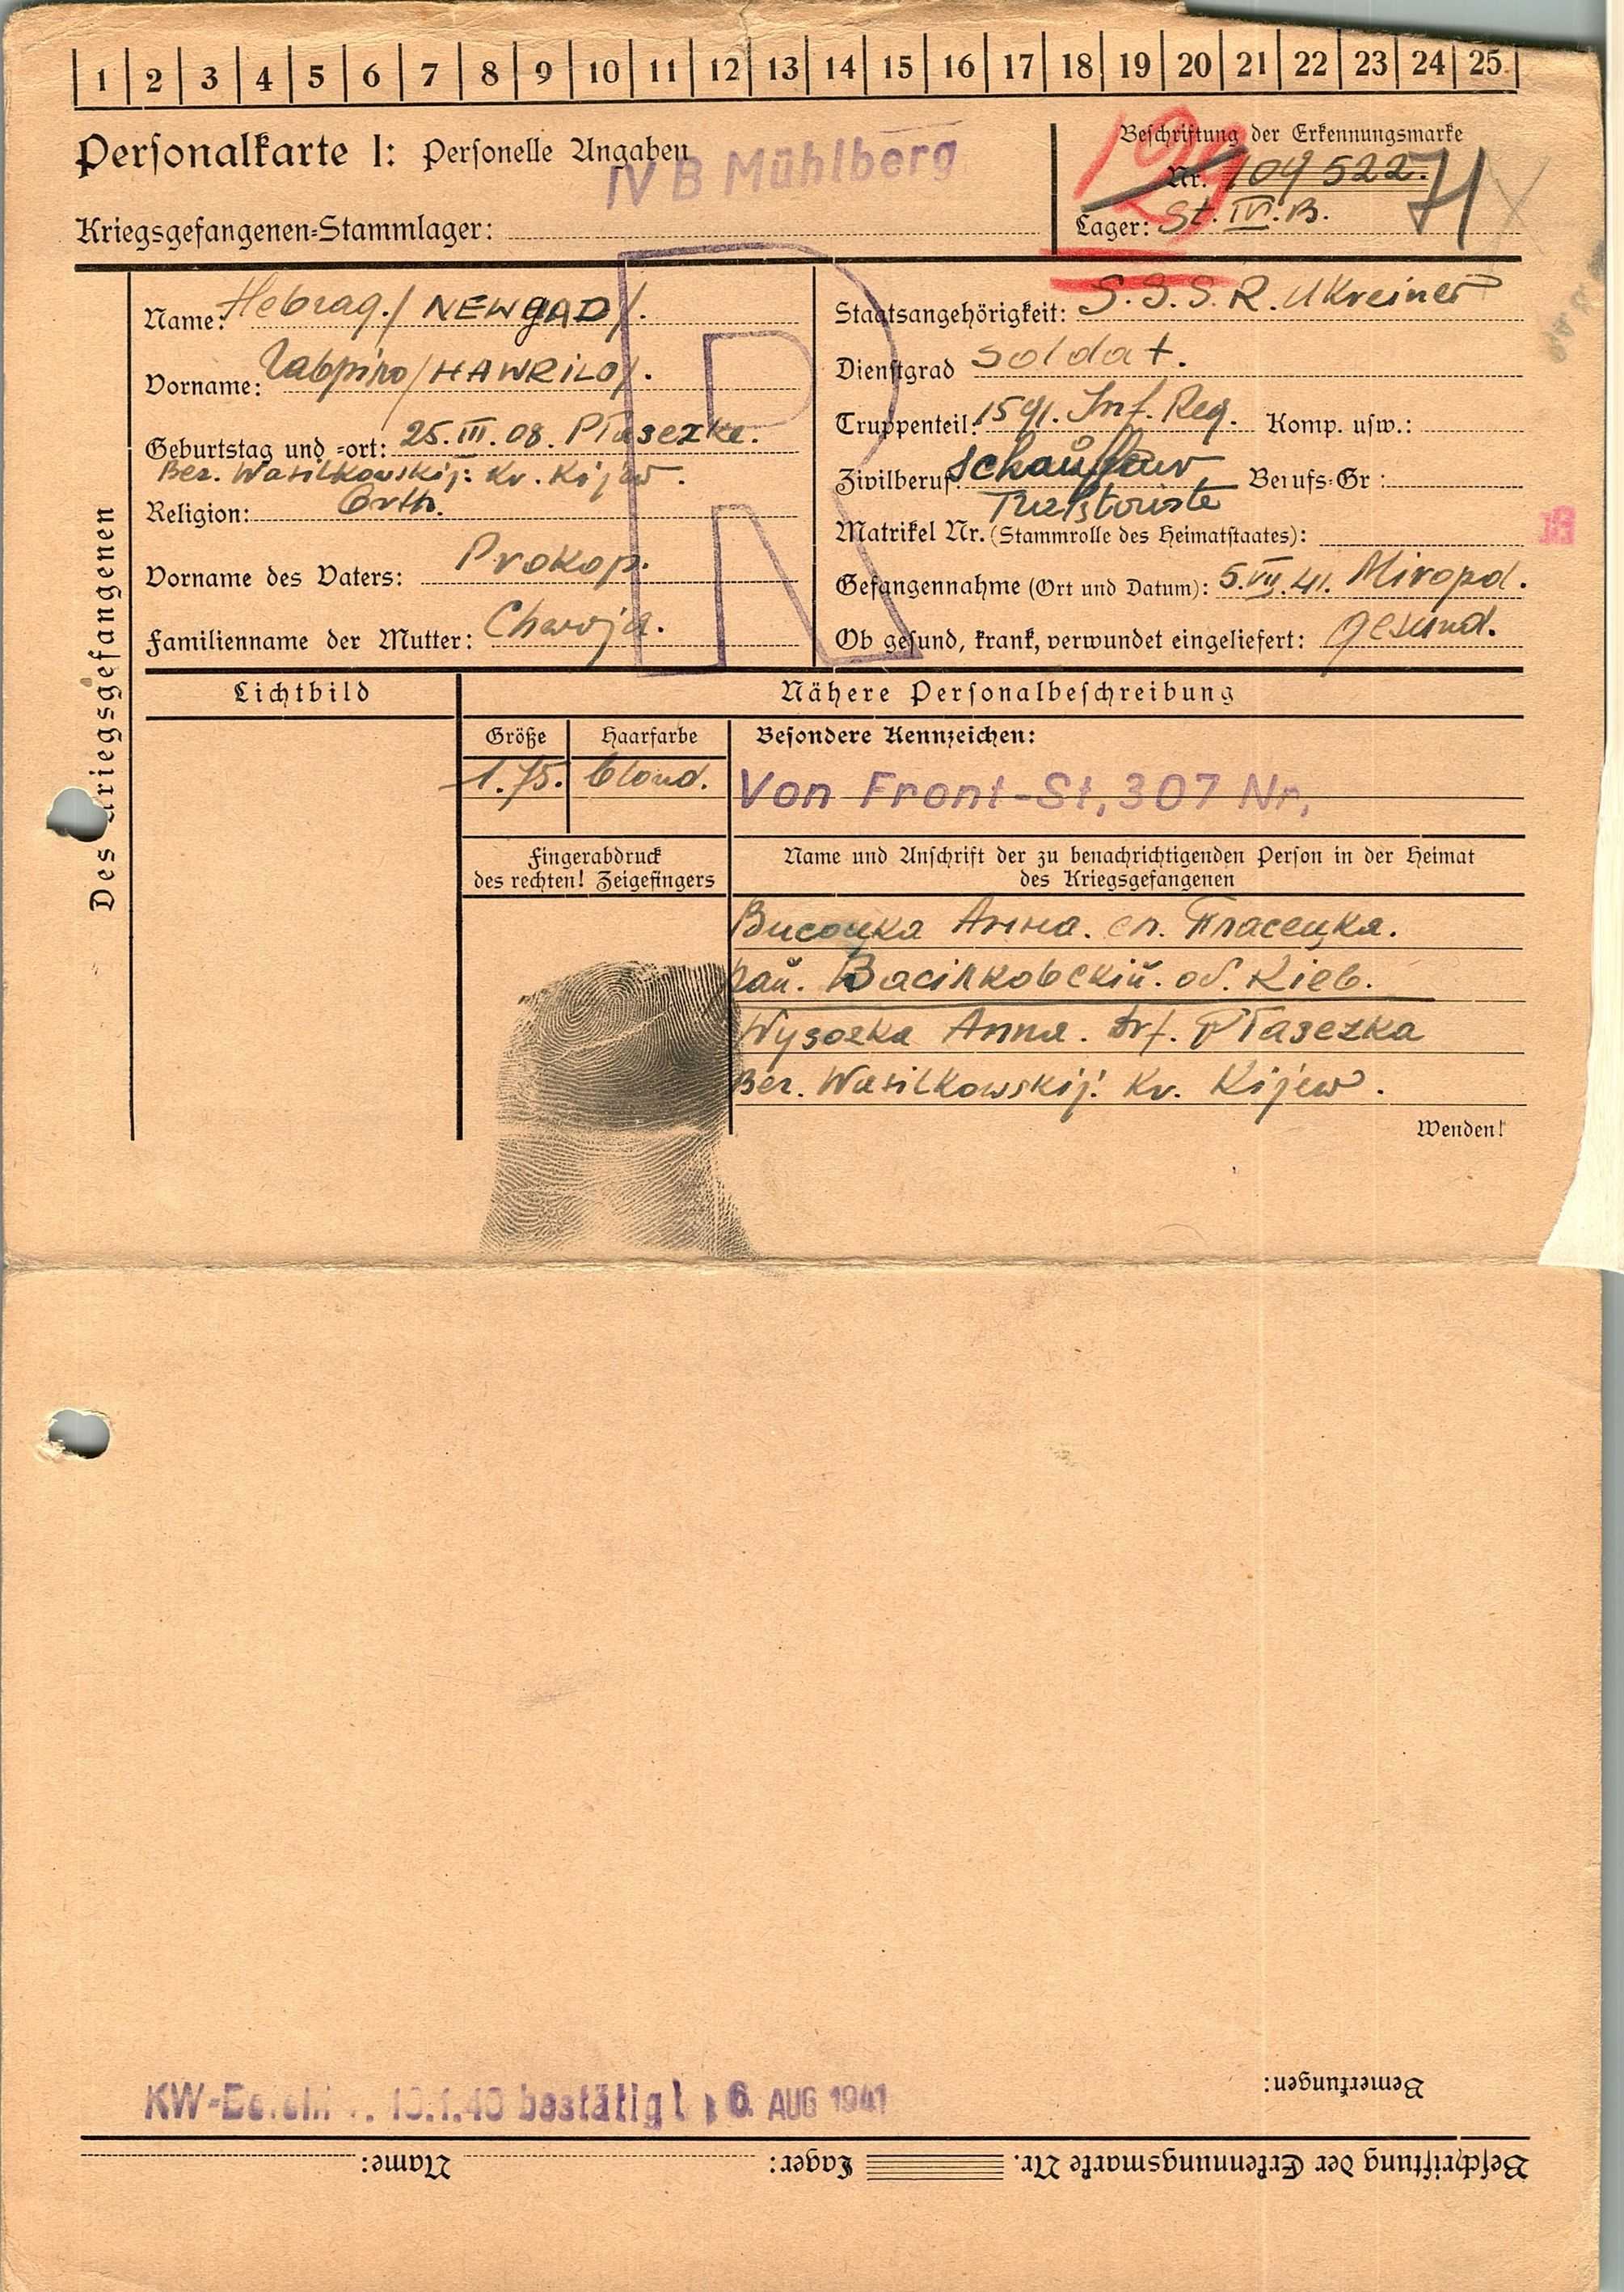 1 2 3 4 5 6 7 8 9 10 11 12 13 14 15 16 17 18 19 20 21 22 23 24 25
Personalkarte I: Personelle Angaben
IV B Mühlberg
Kriegsgefangenen-Stammlager:
Beschriftung der Erkennungsmarke
Nr. 109522.
Lager: St. IV. B.
129
Des Kriegsgefangenen
Name: / NEWGAD /.
Vorname: / HAWRILO /.
Geburtstag und -ort: 25. III. 08. Ptasezke.
Bez. Wasilkowskij: Kr. Kijew.
Religion: Orth.
Vorname des Vaters: Prokop.
Familienname der Mutter:
R
Staatsangehörigkeit: S.S.S.R. Ukreiner
Dienstgrad Soldat.
Truppenteil: 1591. Inf. Reg. Komp. usw.:
Zivilberuf: Berufs-Gr:
Matrikel Nr. (Stammrolle des Heimatstaates):
Gefangennahme (Ort und Datum): 5. VII. 41. Miropol.
Ob gesund, krank, verwundet eingeliefert: gesund.
Lichtbild
Nähere Personalbeschreibung
Größe Haarfarbe Besondere Kennzeichen:
1.75. blond. Von Front-St, 307 Nr,
Fingerabdruck
des rechten! Zeigefingers
Name und Anschrift der zu benachrichtigenden Person in der Heimat
des Kriegsgefangenen
Висоцка Анна. сл. Пласецка.
рай. Васілковскій. об. Кіев.
Wysozka Anna. Drf. Ptasezka
Bez. Wasilkowskij: Kr. Kijew.
Wenden!
Bemerkungen:
bestätigt 6. AUG 1941
Beschriftung der Erkennungsmarke Nr. Lager: Name: